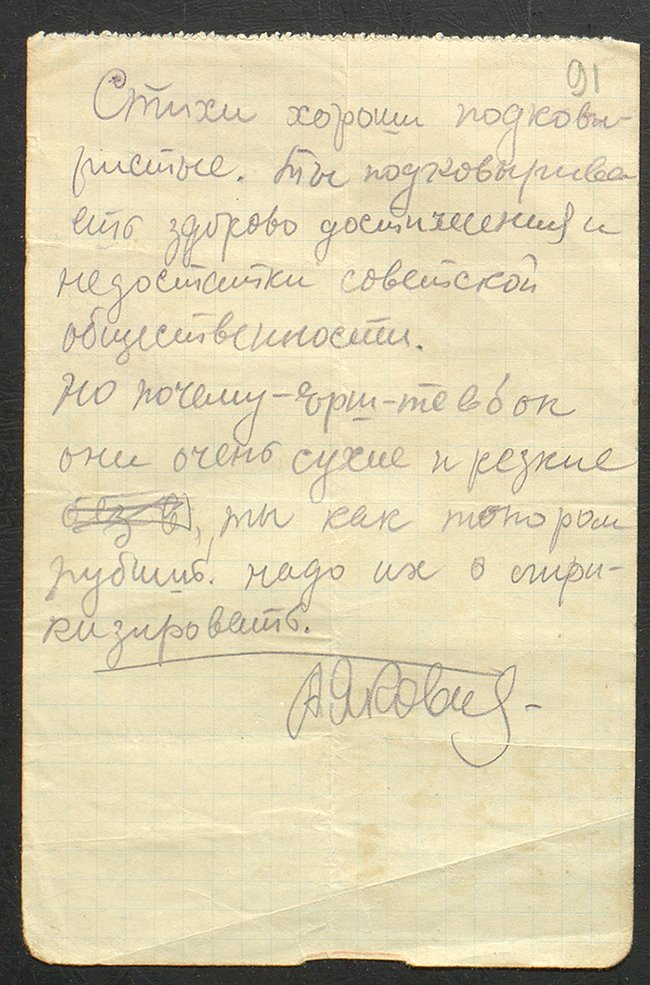 91
Стихи хороши подковы-
ристые. Ты подковырива
ешь здорово достижения и
недостатки советской
общественности.
Но почему-
они очень сухие и резкие
без в, ты как топором
рубишь. надо их о лири-
кизировать.